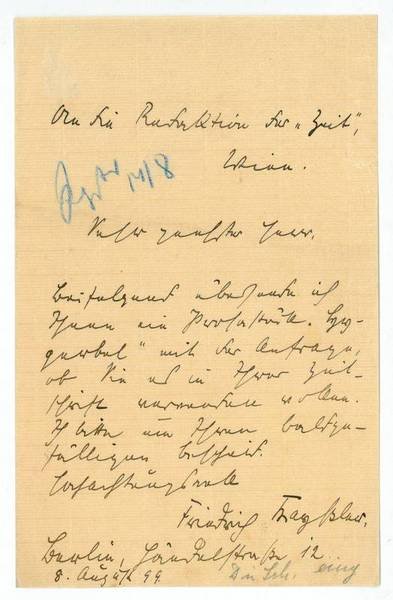 An die Redaktion der „Zeit",
Wien.
14/8
Sehr geehrter Herr,
Beifolgend übersende ich
Ihnen ein Prosastück
mit der Anfrage,
ob Sie es in Ihrer Zeit-
schrift verwenden wollen.
Ich bitte um Ihren baldge-
fälligen Bescheid.
Hochachtungsvoll
Friedrich Kayßler.
Berlin, Händelstraße 12.
8. August 99